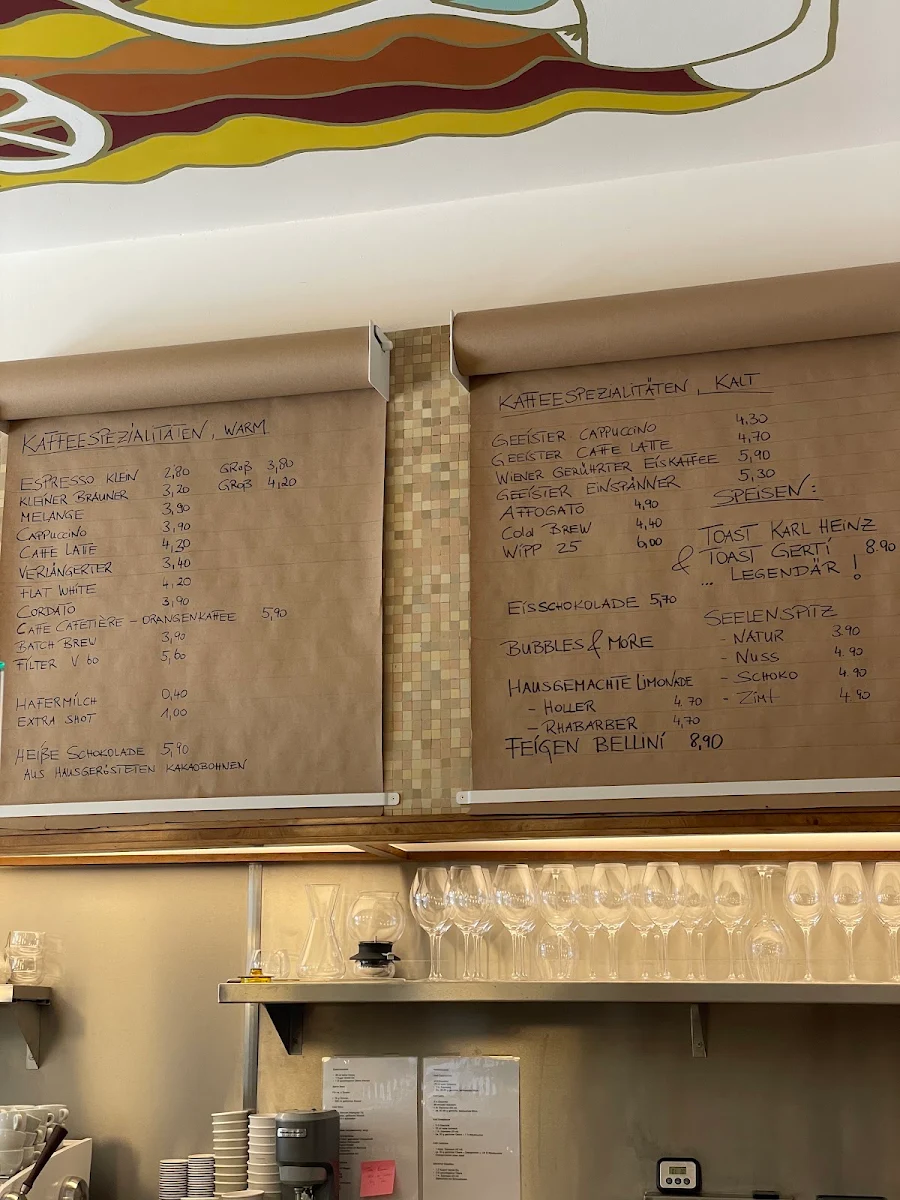 KAFFEESPEZIALITÄTEN, WARM
ESPRESSO KLEIN 2,80 GROß 3,80
KLEINER BRAUNER 3,20 GROß 4,20
MELANGE 3,90
CAPPUCCINO 3,90
CAFFE LATTE 4,20
VERLÄNGERTER 3,40
FLAT WHITE 4,20
CORDATO 3,90
CAFFE CAFETIÈRE - ORANGENKAFFEE 5,90
BATCH BREW 3,90
FILTER V60 5,60
HAFERMILCH 0,40
EXTRA SHOT 1,00
HEIßE SCHOKOLADE 5,90
AUS HAUSGERÖSTETEN KAKAOBOHNEN
KAFFEESPEZIALITÄTEN, KALT
GEEISTER CAPPUCCINO 4.30
GEEISTER CAFFE LATTE 4,70
WIENER GERÜHRTER EISKAFFEE 5,90
GEEISTER EINSPÄNNER 5,30
AFFOGATO 4,90
COLD BREW 4,40
WIPP 25 6,00
EISSCHOKOLADE 5,70
BUBBLES & MORE
HAUSGEMACHTE LIMONADE
- HOLLER 4.70
- RHABARBER 4,70
FEIGEN BELLINI 8,90
SPEISEN:
TOAST KARL HEINZ
& TOAST GERTI 8.90
... LEGENDÄR!
SEELENSPITZ
- NATUR 3.90
- NUSS 4.90
- SCHOKO 4.90
- ZIMT 4.90